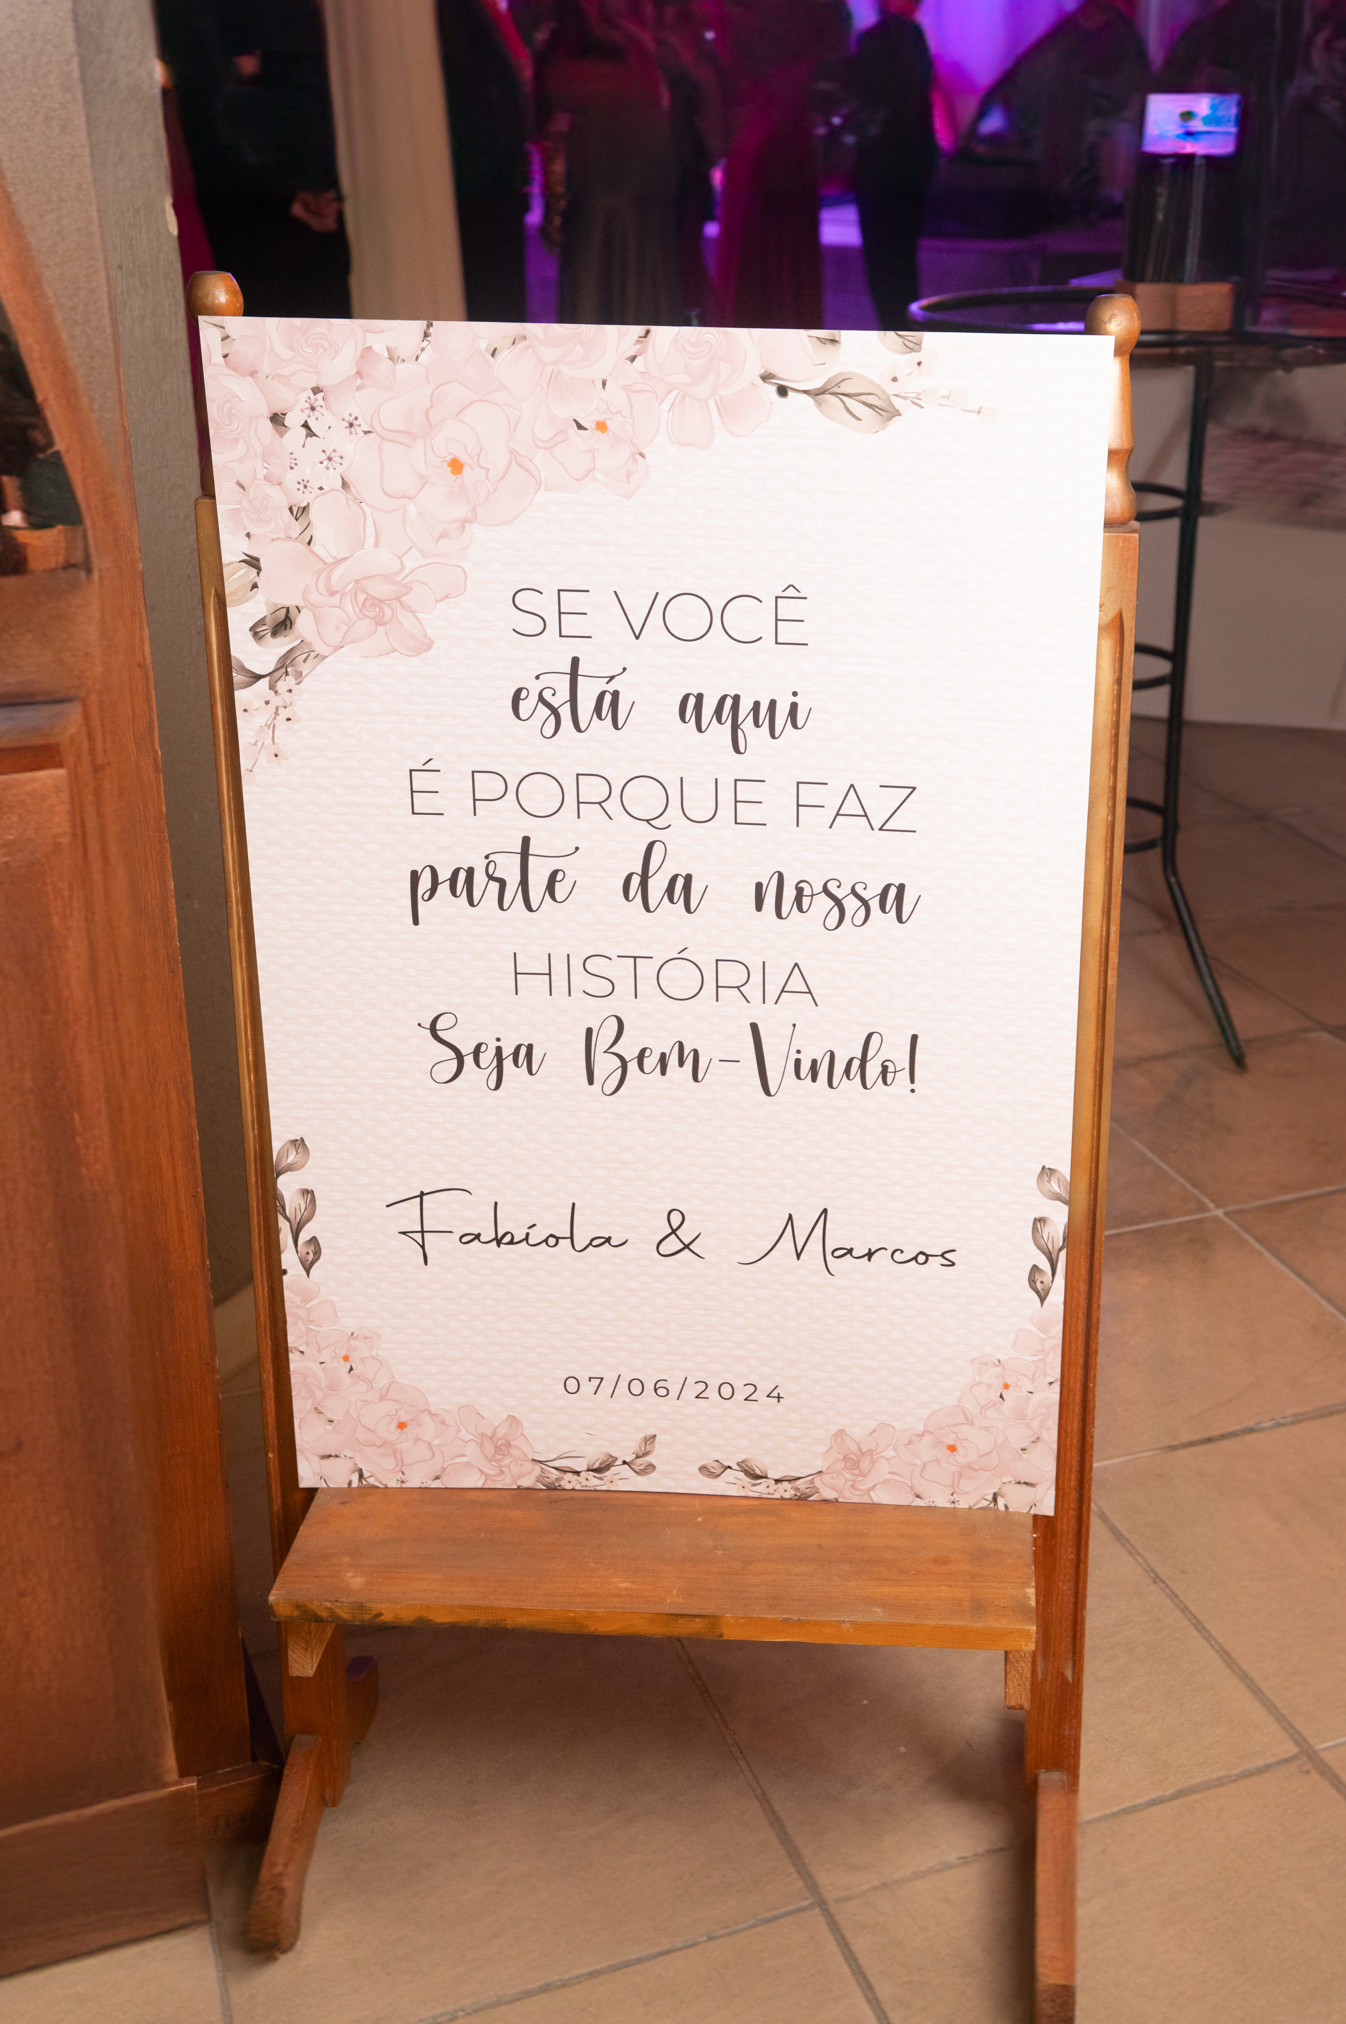 SE VOCÊ
está aqui
É PORQUE FAZ
parte da nossa
HISTÓRIA
Seja Bem-Vindo!
Fabíola & Marcos
07/06/2024